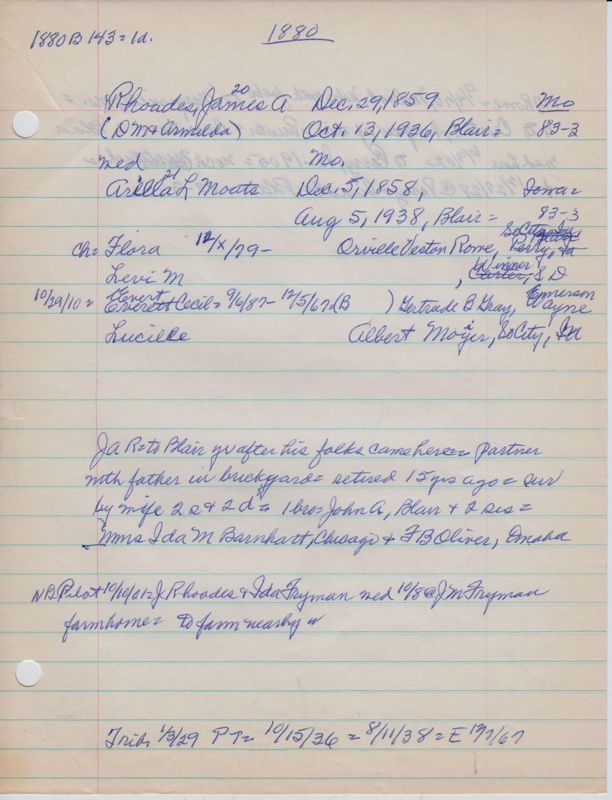 1880B 143=1d.
1880
20
Rhoades, James A Dec. 29, 1859 Mo
(DM & Armilda) Oct. 13, 1936, Blair= 83-2
wed Mo.
21
Arilla L Moats Dec. 5, 1858, Iowa=
Aug 5, 1938, Blair= 83-3
So City, Ia
Ch= Flora 12/x/79- Orville Veston Rowe, Perry, Ia
Winner
Levi M , Carter, S D
Elvert Emerson
10/29/10= Everett Cecil= 9/6/87- 12/5/67 (B ) Gertrude B Gray, Wayne
Lucille Albert Moyer, So City, Ia
Ja R= to Blair yr after his folks came here= partner
with father in brickyard= retired 15 yrs ago= sur
by wife 2 s & 2 d= 1 bro= John A, Blair & 2 sis=
Mms Ida M Barnhart, Chicago & F B Oliver, Omaha
NB Pilot 10/10/01= J Rhoades & Ida Fryman wed 10/8 @ J M Fryman
farmhome= to farm nearby
Trib= 1/3/29 PT= 10/15/36 = 8/11/38= E 12/7/67